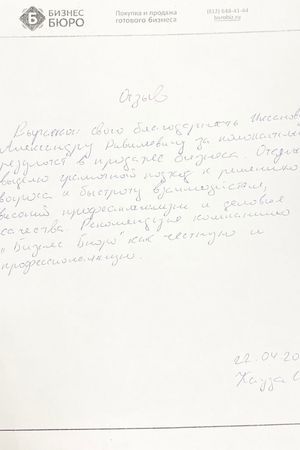 БИЗНЕС
БЮРО
Покупка и продажа
готового бизнеса
(812) 648-41-44
burobiz.ru
Отзыв
Выражаю свою благодарность
Александру Равильевичу за
результат в продаже бизнеса.
грамотный подход к решению
вопроса и быстроту взаимодействия,
высокий профессионализм и деловые
качества. Рекомендую компанию
„Бизнес Бюро" как честную и
профессиональную.
22.04.20